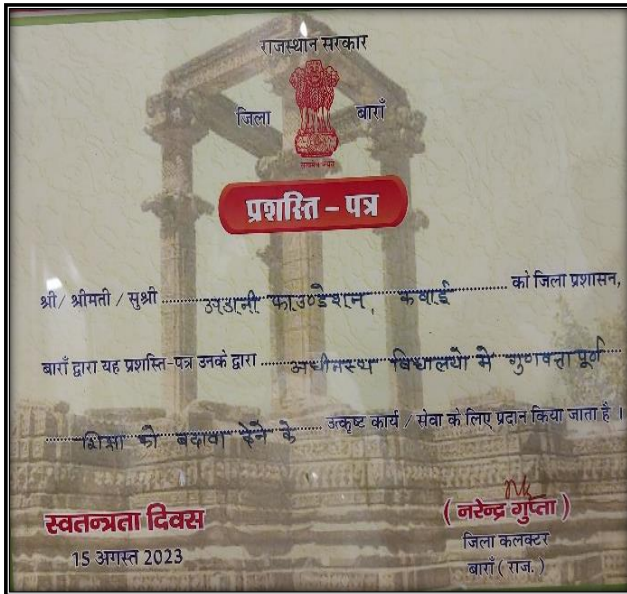 राजस्थान सरकार
जिला बाराँ
प्रशस्ति – पत्र
श्री/ श्रीमती / सुश्री अडानी फाउण्डेशन, कवाई को जिला प्रशासन,
बाराँ द्वारा यह प्रशस्ति-पत्र उनके द्वारा अधीनस्थ विद्यालयो मे गुणवत्ता पूर्ण
शिक्षा को बढावा देने के उत्कृष्ट कार्य / सेवा के लिए प्रदान किया जाता है ।
स्वतन्त्रता दिवस
15 अगस्त 2023
( नरेन्द्र गुप्ता )
जिला कलक्टर
बाराँ ( राज. )